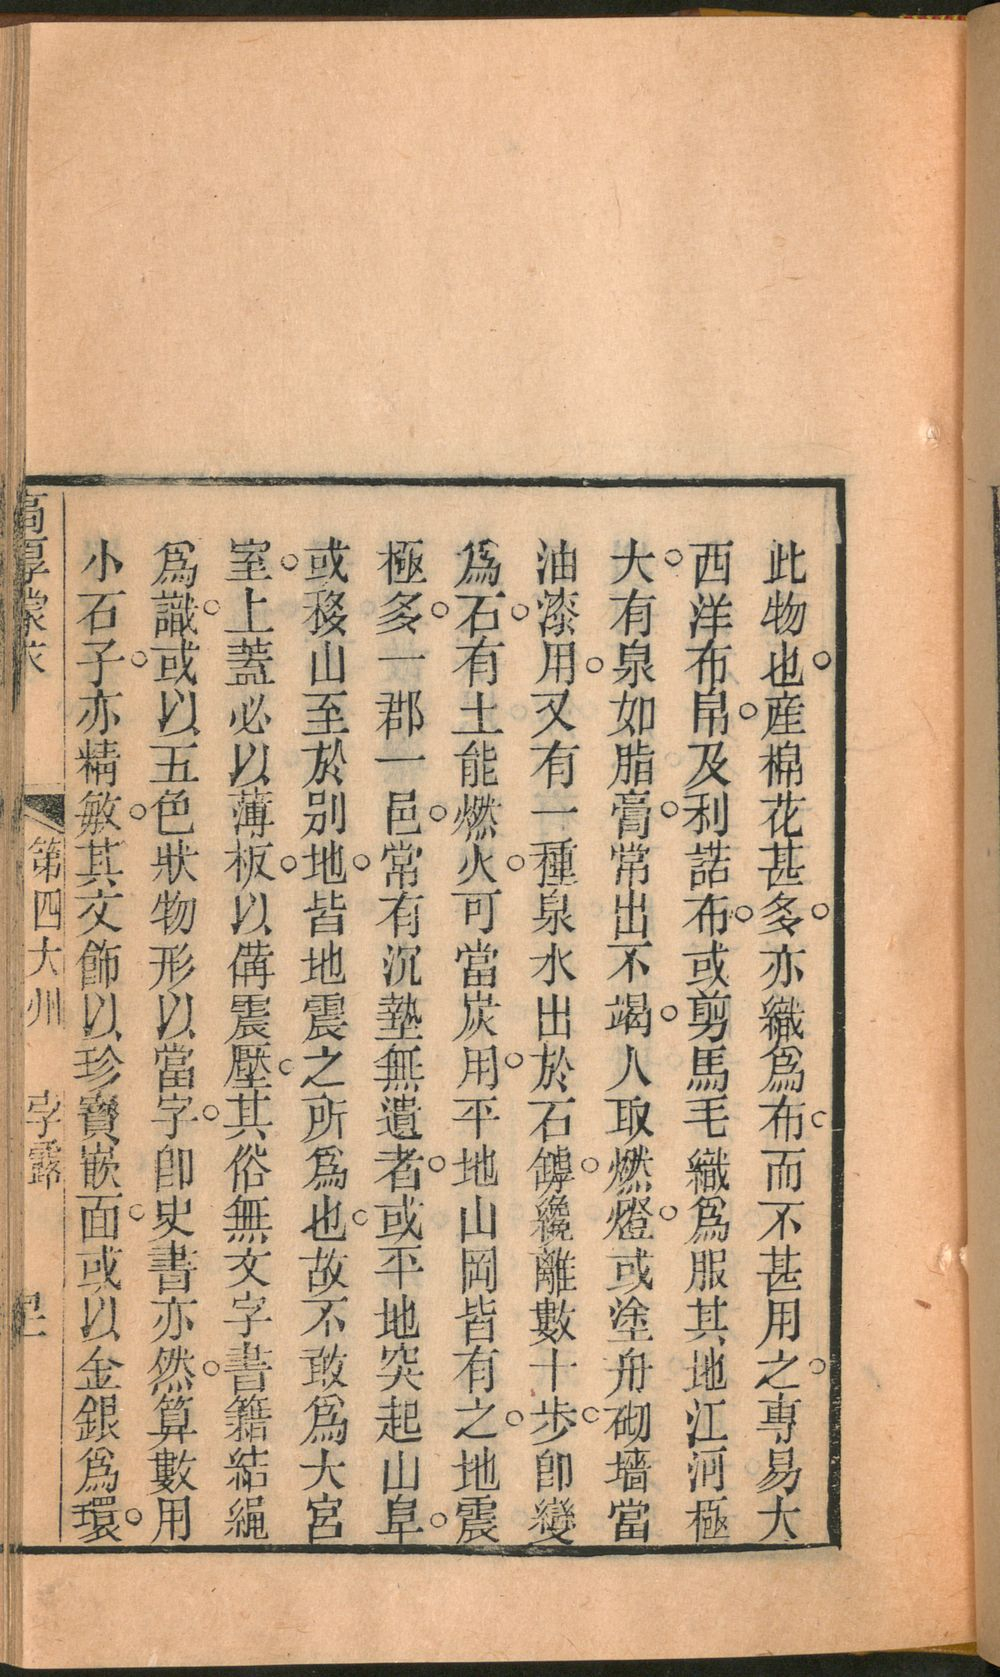 此物也。産棉花甚多。亦織爲布。而不甚用之。專易大
西洋布帛。及利諾布。或剪馬毛織爲服。其地江河極
大。有泉如脂膏。常出不竭。人取燃燈。或塗舟砌墻。當
油漆用。又有一種泉水。出於石罅。纔離數十步。卽變
爲石。有土能燃火。可當炭用。平地山岡皆有之。地震
極多。一郡一邑。常有沉墊無遺者。或平地突起山阜。
或移山至於別地。皆地震之所爲也。故不敢爲大宮
室。上蓋必以薄板。以備震壓。其俗無文字書籍。結繩
爲識。或以五色狀物形以當字。卽史書亦然。算數用
小石子。亦精敏。其文飾以珍寶嵌面。或以金銀爲環。
高厚蒙求
第四大州
孛露